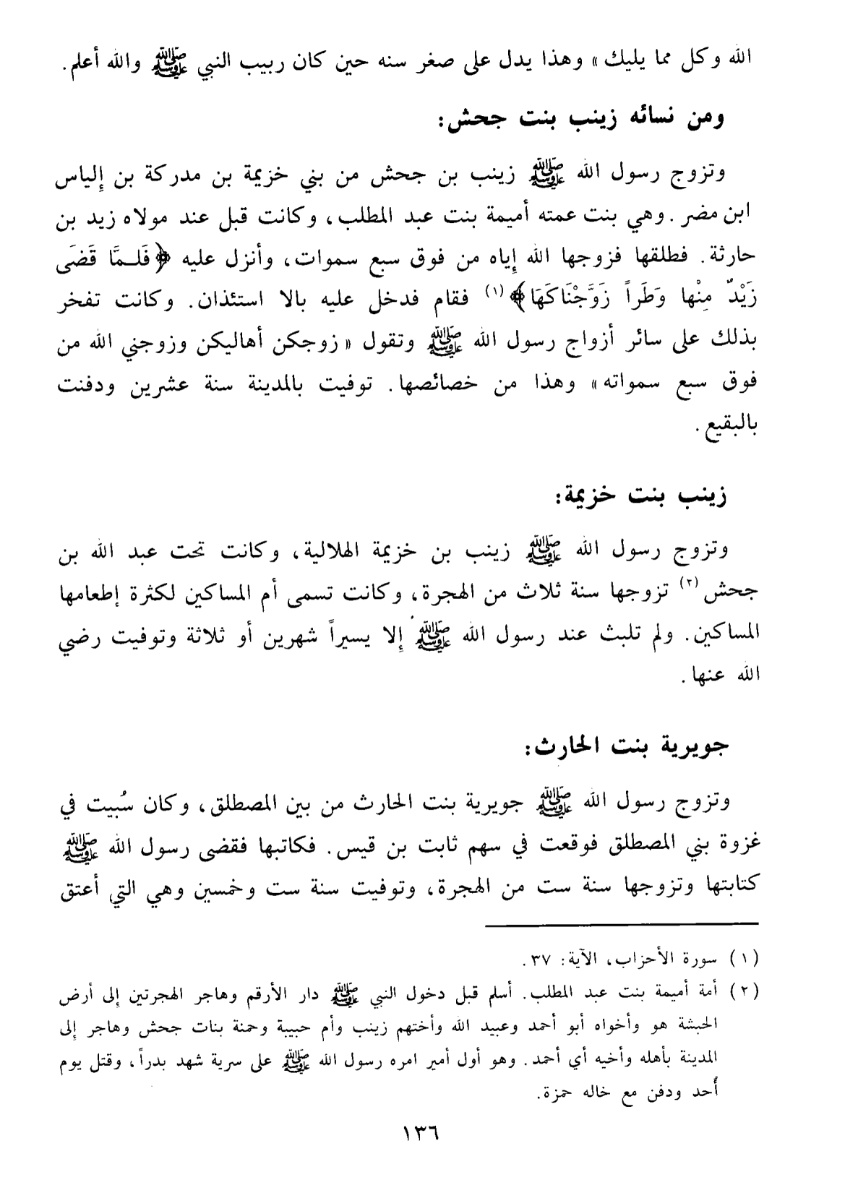 الله وكل مما يليك » وهذا يدل على صغر سنه حين كان ربيب النبي ﷺ والله أعلم .
ومن نسائه زينب بنت جحش :
وتزوج رسول الله ﷺ زينب بن جحش من بني خزيمة بن مدركة بن إلياس
ابن مضر . وهي بنت عمته أميمة بنت عبد المطلب ، وكانت قبل عند مولاه زيد بن
حارثة . فطلقها فزوجها الله إياه من فوق سبع سموات ، وأنزل عليه ﴿ فَلـمَّا قَضَى
زَيْدٌ مِنْها وَطَراً زَوَّجْنَاكَهَا ﴾ (١) فقام فدخل عليه بالا استئذان . وكانت تفخر
بذلك على سائر أزواج رسول الله ﷺ وتقول « زوجكن أهاليكن وزوجني الله من
فوق سبع سمواته » وهذا من خصائصها . توفيت بالمدينة سنة عشرين ودفنت
بالبقيع .
زينب بنت خزيمة :
وتزوج رسول الله ﷺ زينب بن خزيمة الهلالية ، وكانت تحت عبد الله بن
جحش (٢) تزوجها سنة ثلاث من الهجرة ، وكانت تسمى أم المساكين لكثرة إطعامها
المساكين . ولم تلبث عند رسول الله ﷺ إلا يسيراً شهرين أو ثلاثة وتوفيت رضي
الله عنها .
جويرية بنت الحارث :
وتزوج رسول الله ﷺ جويرية بنت الحارث من بين المصطلق ، وكان سُبيت في
غزوة بني المصطلق فوقعت في سهم ثابت بن قيس . فكاتبها فقضى رسول الله ﷺ
كتابتها وتزوجها سنة ست من الهجرة ، وتوفيت سنة ست وخمسين وهي التي أعتق
(١) سورة الأحزاب ، الآية : ٣٧ .
(٢) أمة أميمة بنت عبد المطلب . أسلم قبل دخول النبي ﷺ دار الأرقم وهاجر الهجرتين إلى أرض
الحبشة هو وأخواه أبو أحمد وعبيد الله وأختهم زينب وأم حبيبة وحمنة بنات جحش وهاجر إلى
المدينة بأهله وأخيه أي أحمد . وهو أول أمير امره رسول الله ﷺ على سرية شهد بدراً ، وقتل يوم
أُحد ودفن مع خاله حمزة .
١٣٦